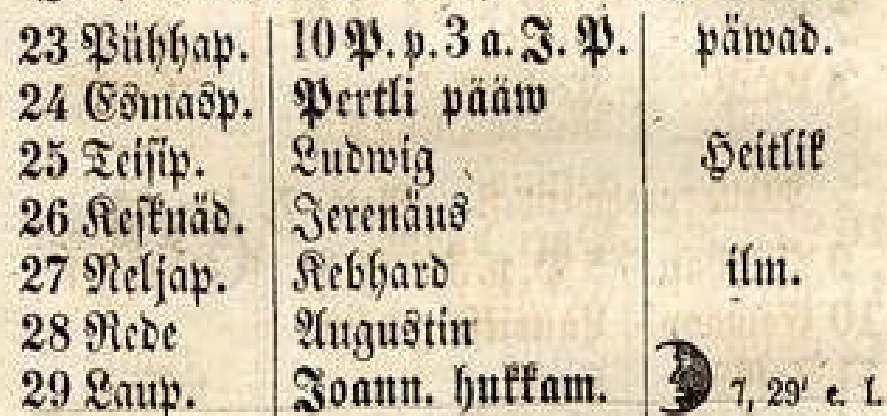 23 Pühhap. 10 P. p. 3 a. J. P. päwad.
24 Esmasp. Pertli pääw
25 Teisip. Ludwig Heitlik
26 Kesknäd. Jerenäus
27 Neljap. Kebhard ilm.
28 Rede Augustin
29 Laup. Joann. hukkam. 7, 29' e. l.